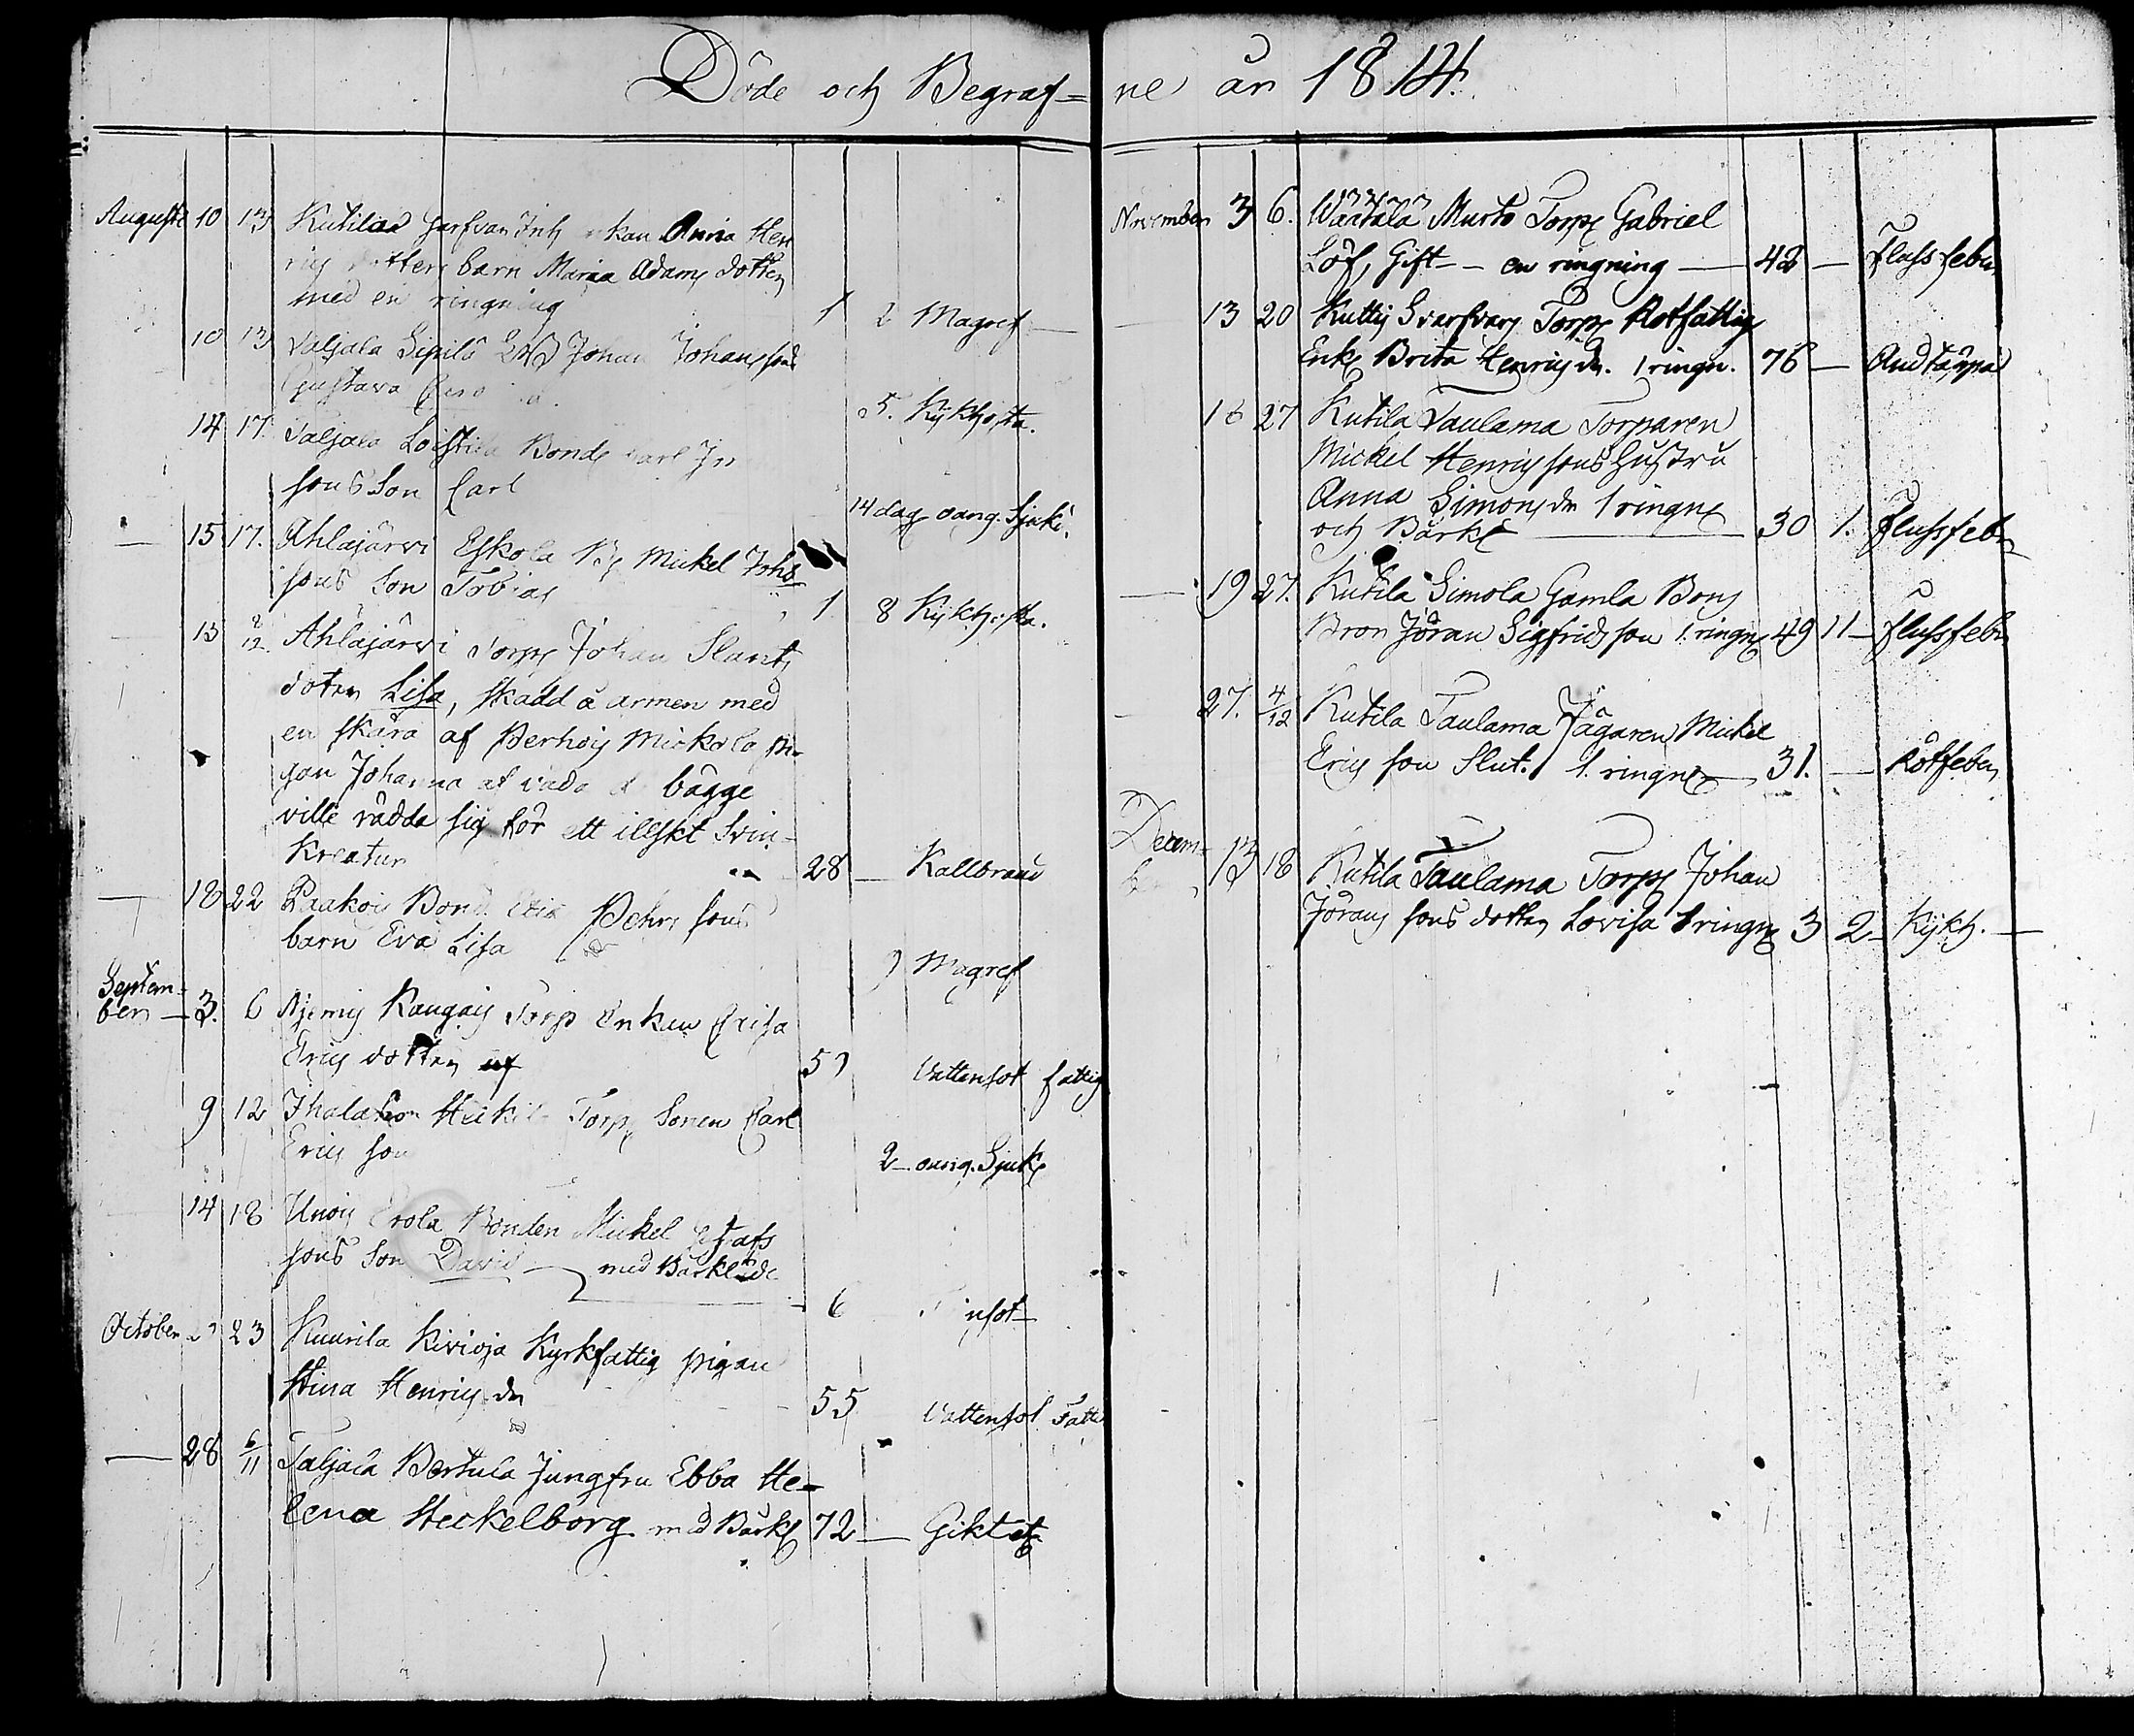 Döde och Begraf=ne år 1814.
Augusti 10 13 Kutila Enkan Anna Hen
rics dotters barn Maria Adams dotter
med en ringning 1 2 Magref
10 13 Taljala Sipilä Johan Johanssons
Gustava
5. Kikhosta.
14 17. Taljala Loistila Bonds Carl
sons Son Carl
14 dag. oang. Sjukd.
15 17. Ahlajärvi Eskola Mickel Johs
sons Son Tobias 1 8 Kikh:sta.
15 2/12 Ahlajärvi Torp Johan Slants
doter Lisa, skadd å armen med
en skära af Perhois Mickola pi-
gan Johanna af våda då bägge
ville rädda sig för ett ilskt Svin-
Kreatur 28 — Kallbrand
18 22 Laakois Bond Pehrs sons
barn Eva Lisa
9 Magref
Septem-
ber — 3. 6 Niemis Kangais Torp Enkan Caisa
Erics dotter 59 Vattensot fattig
9 12 Heikil Torp Sonen Carl
Erics son
2 — oang. Sjuk
14 18 Unois Erola Bonden Mickel Gustafs
sons Son David — med Bårkläde
6 nsot
October 23 Kuurila Kivioja Kyrkfattig pigan
Stina Henrics dr 55 Vattensot Fatti
— 28 6/11 Taljala Bertula Jungfru Ebba He-
lena Heckelborg med Bårkl 72 — Gikt etc
November 3 6. Wäätälä Murto Torp Gabriel
Löf, Gift — en ringning — 42 — Flussfeber
13 20 Kuttis Svarfvars Torp Rotfattig
Enk Brita Henrics dr. 1 ringn. 76 — Andtäppa
16 27 Kutila Taulama Torparen
Mickel Henrics sons Hustru
Anna Simons dr 1 ringn
och Bårkl — 30 1. Flussfeber
— 19 27. Kutila Simola Gamla Bons
Bron Jöran Sigfrids son 1. ringn 49 11 — Flussfeber
27. 4/12 Kutila Taulama Jägaren Mickel
Erics son Slut. 1. ringn — 31. — Rötfeber
Decem-
ber 13 18 Kutila Taulama Torp Johan
Jörans sons dotter Lovisa 1 ringn 3 2 — Kikh.